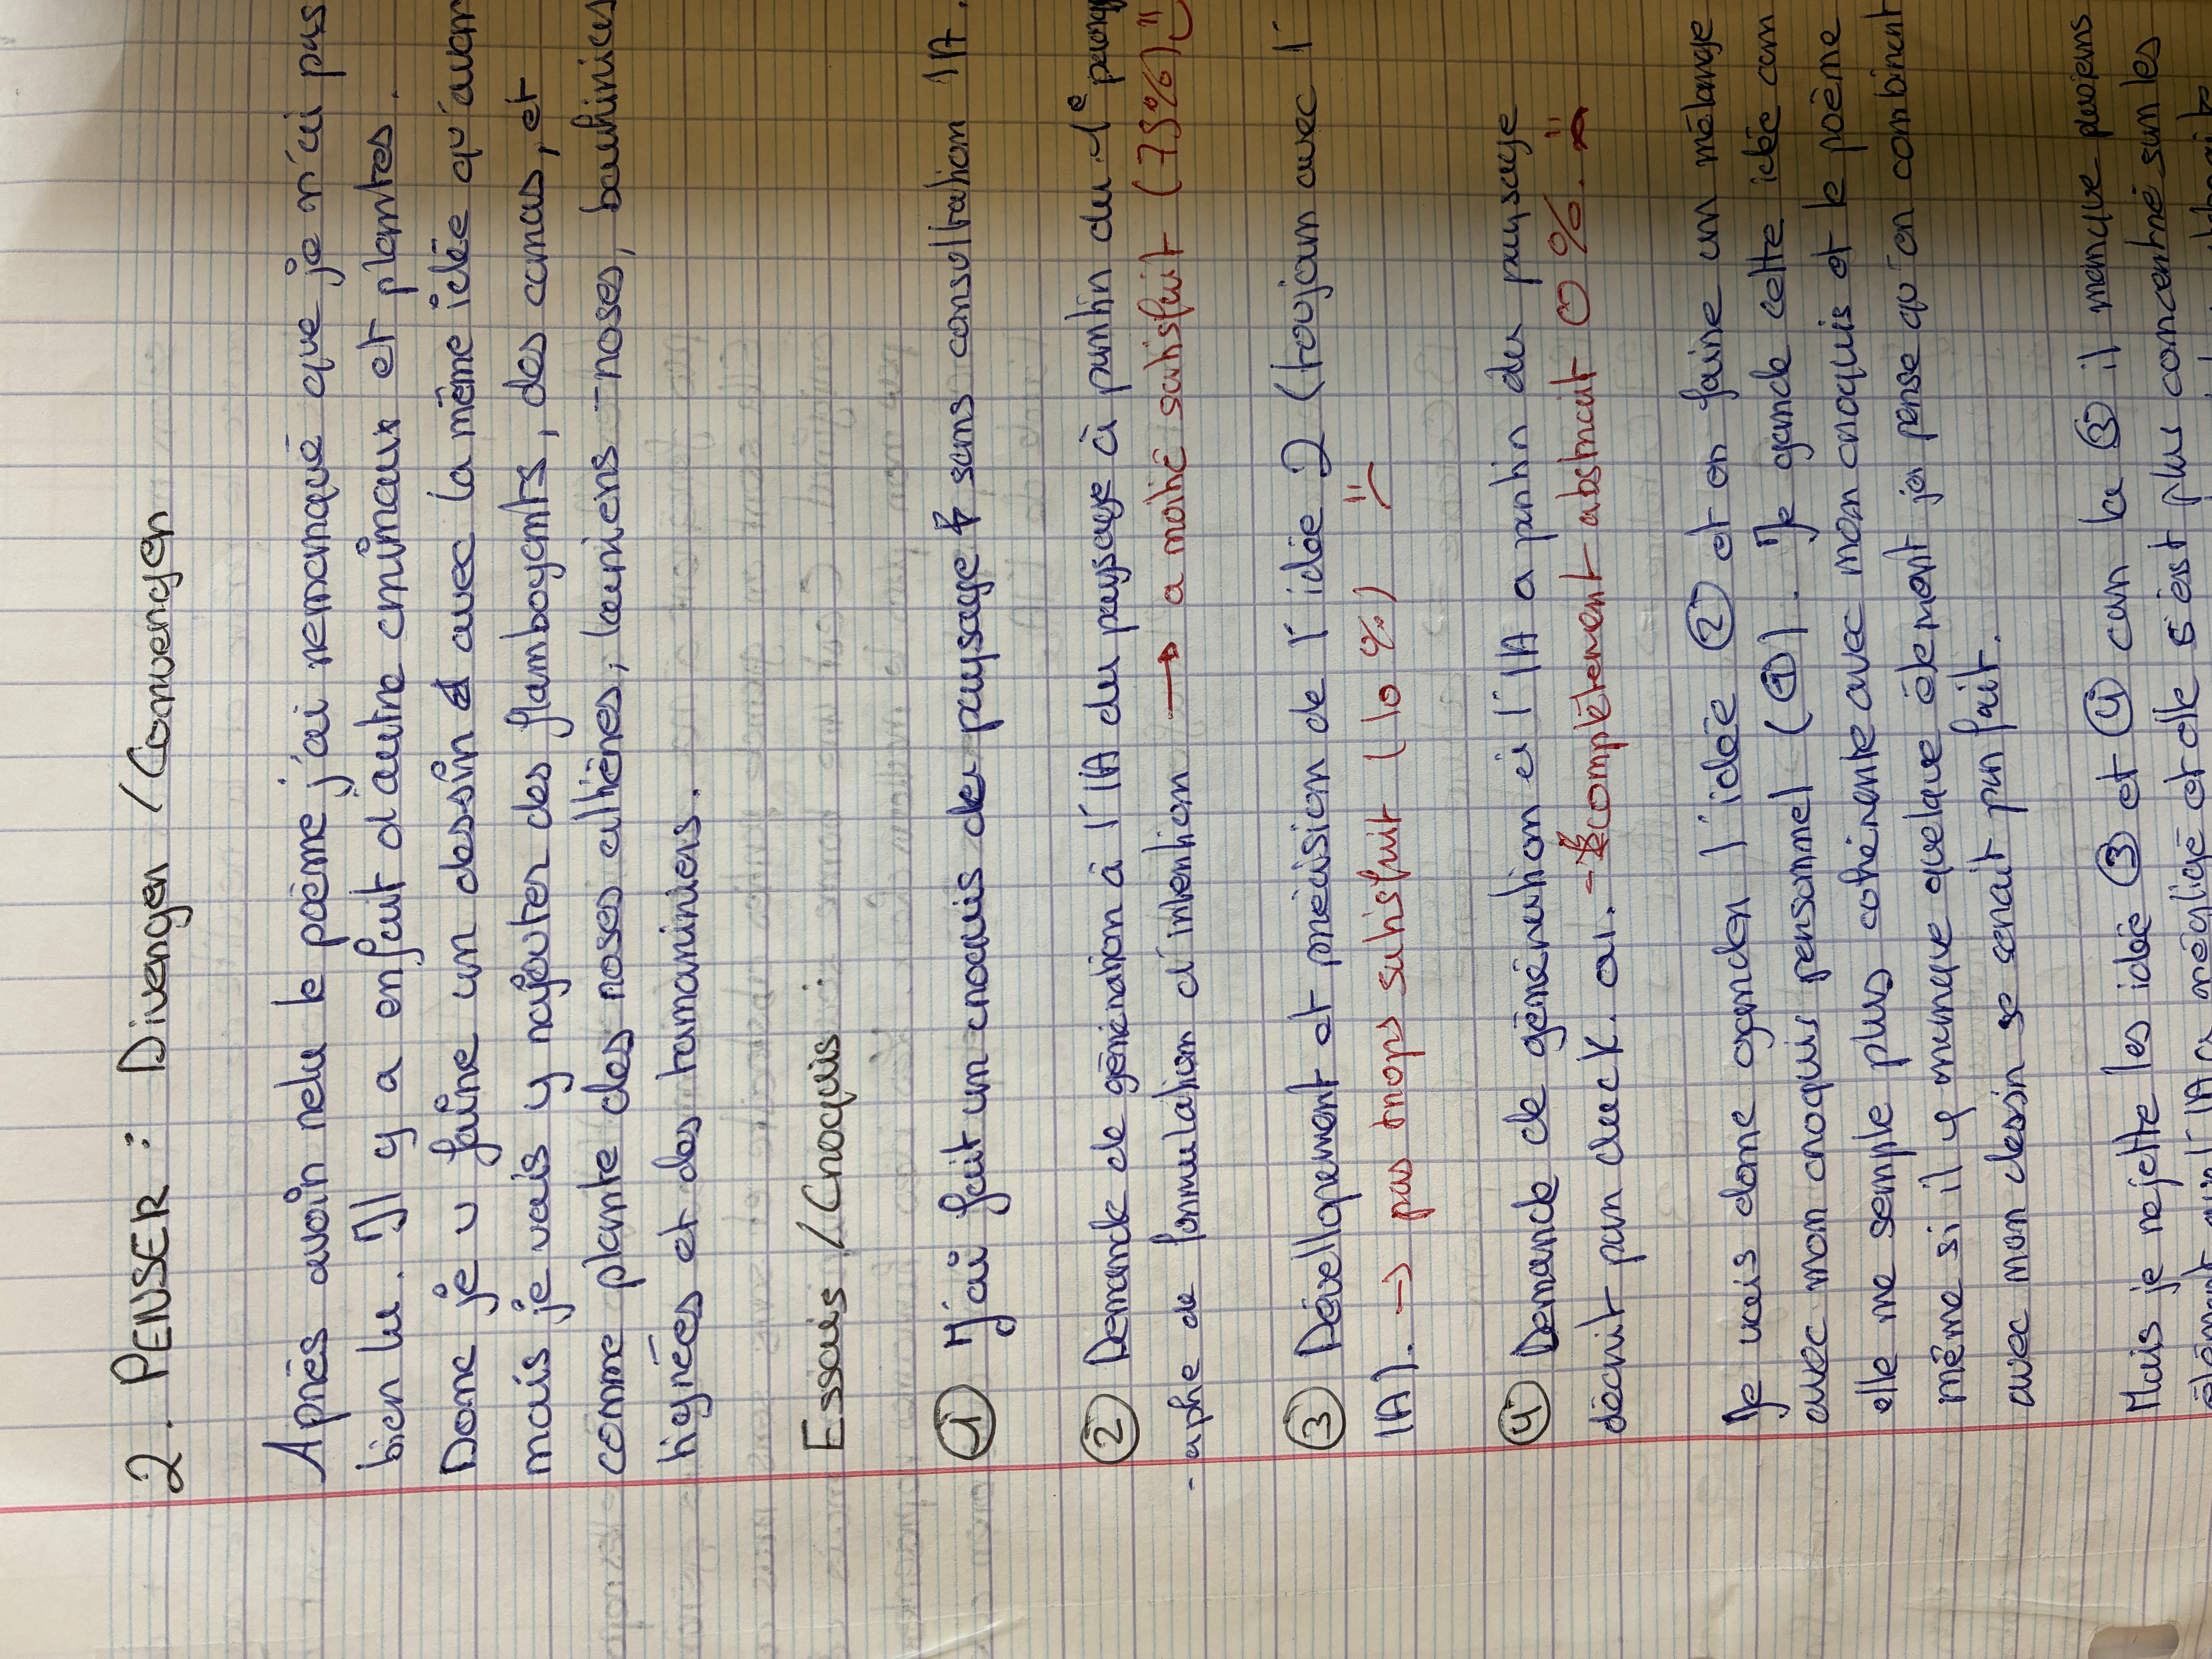 2. PENSER : Diverger / Converger
Après avoir relu le poème j'ai remarqué que je n'ai pas
bien lu. Il y a enfait d'autre animaux et plantes.
Donc je v faire un dessin avec la même idée qu'avant
mais je vais y rajouter des flamboyants, des canas, et
comme plante des roses althères, lauriers-roses, bauhinias
higrées et des tamariniers.
Essais / Croquis :
① J'ai fait un croquis du paysage sans consoltation IA.
② Demande de génération à l'IA du paysage à partir du 1e paragr
-aphe de formulation d'intention → a moitié satisfait (75%)
③ Dévellopement et précision de l'idée 2 (toujour avec l'
IA). → pas trops satisfait (10 %)
④ Demande de génération à l'IA a partir du paysage
décrit par duck.ai. → complètement abstrait 0 %.
Je vais donc garder l'idée ② et en faire un mélange
avec mon croquis personnel (①). Je garde cette idée car
elle me semple plus cohérente avec mon croquis et le poème
même si il y manque quelque élément je pense qu'en combinant
avec mon dessin se serait parfait.
Mais je rejette les idée ③ et ④ car la ③ il manque plusieurs
élément l'IA a négligé et elle s'est plus concentré sur les